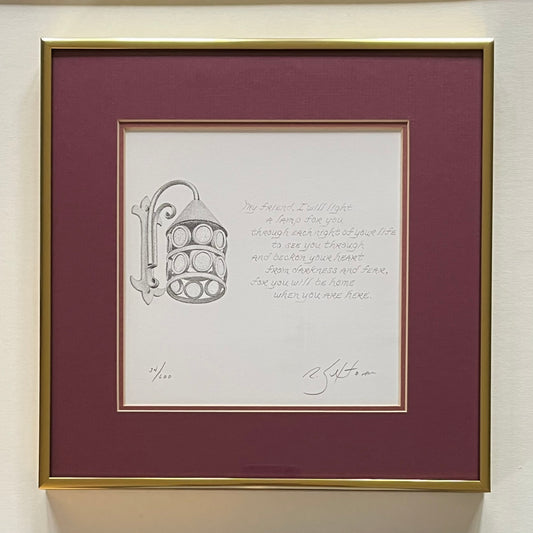 My friend, I will light
a lamp for you
through each night of your life
to see you through
and beckon your heart
from darkness and fear,
for you will be home
when you are here.
34/600